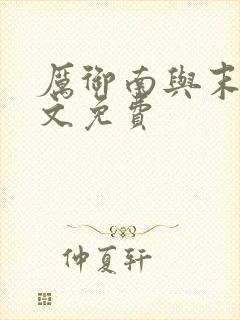 厲御南與末
文免費
仲夏轩